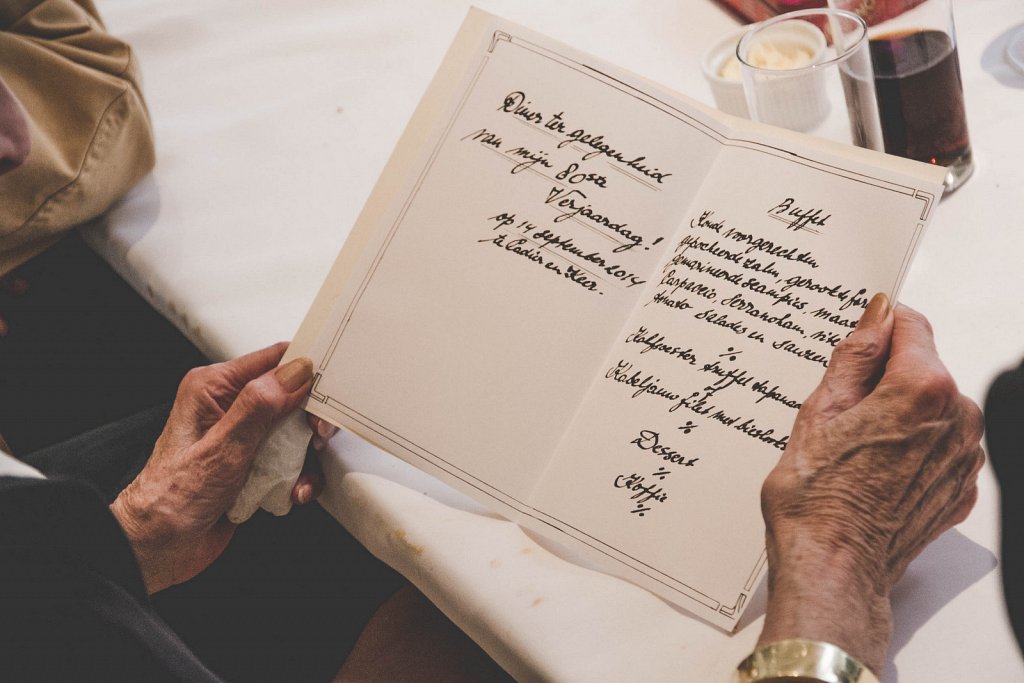 Diner ter gelegenheid
van mijn 80ste
Verjaardag!
op 14 september 2014
te Cadier en Keer.
Buffet
Koude voorgerechten
gerookte zalm, gerookte
gemarineerde scampies,
Carpaccio, Serranoham,
salades en sauzen
%
Kalfsoester truffel tapenade
%
Kabeljauw filet met
%
Dessert
%
Koffie
%